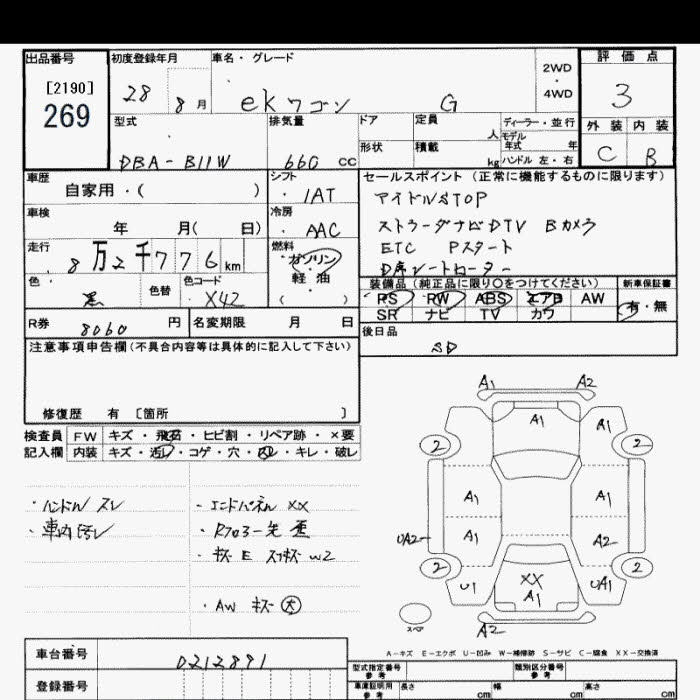 出品番号 初度登録年月 車名・グレード 評価点
[2190] 2WD
269 28 8 月 ekワゴン G ・ 3
4WD
型式 排気量 ドア 定員 ディーラー・並行 外装 内装
人 モデル年式 年
形状 積載 kg ハンドル 左・右 C B
DBA-B11W 660 CC
車歴 シフト セールスポイント (正常に機能するものに限ります)
自家用・( ) 1AT アイドルSTOP
車検 冷房 ストラーダナビDTV Bカメラ
年 月( 日) AAC ETC Pスタート
走行 燃料 D席シートヒーター
8万2千776km ガソリン
色 色替 色コード 軽油 装備品 (純正品に限り○をつけてください) 新車保証書
黒 X42 ( ) PS PW ABS エアB AW 有・無
SR ナビ TV カワ
R券 8060 円 名変期限 月 日 後日品
注意事項申告欄(不具合内容等は具体的に記入して下さい) SD
修復歴 有 〔箇所 〕
検査員 FW キズ・飛石・ヒビ割・リペア跡・×要
記入欄 内装 キズ・汚レ・コゲ・穴・凹・キレ・破レ
・ハンドル スレ ・エンドパネル XX
・車内汚レ ・Rフロアー先 歪
・キズ E スリキズ W2
・AW キズ 大
A1 A2
A1 A1
2 2
A1 A1
UA2 A1 A2
2 2
U1 XX UA1
A1
スペア A2
A-キズ E-エクボ U-凹み W-補修跡 S-サビ C-腐食 XX-交換済
車台番号 0212891 型式指定番号 参考 類別区分番号 参考
登録番号 車庫証明用 参考 長さ cm 幅 cm 高さ cm